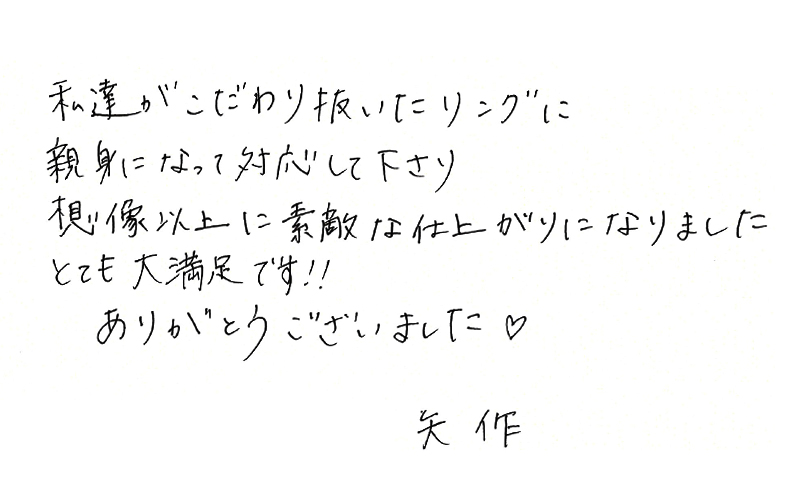 私達がこだわり抜いたリングに
親身になって対応して下さり
想像以上に素敵な仕上がりになりました
とても大満足です!!
ありがとうございました♡
矢作